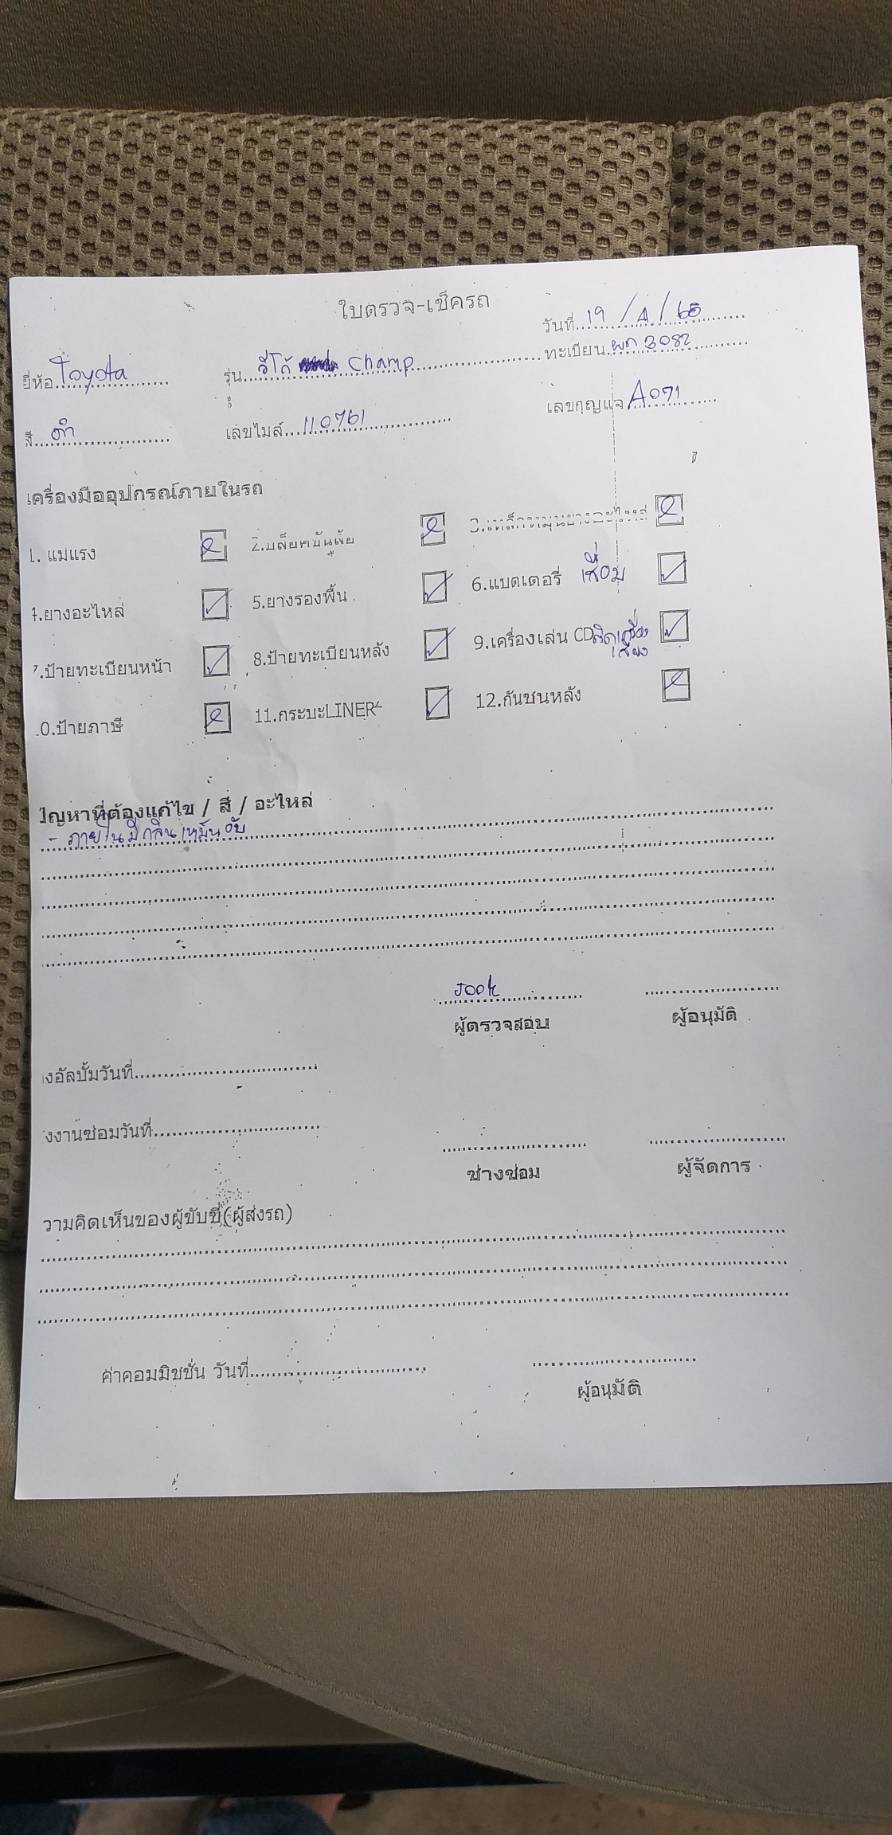 ใบตรวจ-เช็ครถ
วันที่ 19 / 4 / 65
ยี่ห้อ Toyota รุ่น วีโก้ Champ ทะเบียน 3082
สี ดำ เลขไมล์ 110761 เลขกุญแจ A071
เครื่องมืออุปกรณ์ภายในรถ
1. แม่แรง 2. 3.
4.ยางอะไหล่ 5.ยางรองพื้น 6.แบตเตอรี่ เสื่อม
7.ป้ายทะเบียนหน้า 8.ป้ายทะเบียนหลัง 9.เครื่องเล่น CD
10.ป้ายภาษี 11.กระบะLINER 12.กันชนหลัง
ปัญหาที่ต้องแก้ไข / สี / อะไหล่
- ภายในมีกลิ่นเหม็นอับ
Jook
ผู้ตรวจสอบ ผู้อนุมัติ
งอัลบั้มวันที่
งงานซ่อมวันที่
ช่างซ่อม ผู้จัดการ
วามคิดเห็นของผู้ขับขี่(ผู้ส่งรถ)
ค่าคอมมิชชั่น วันที่
ผู้อนุมัติ